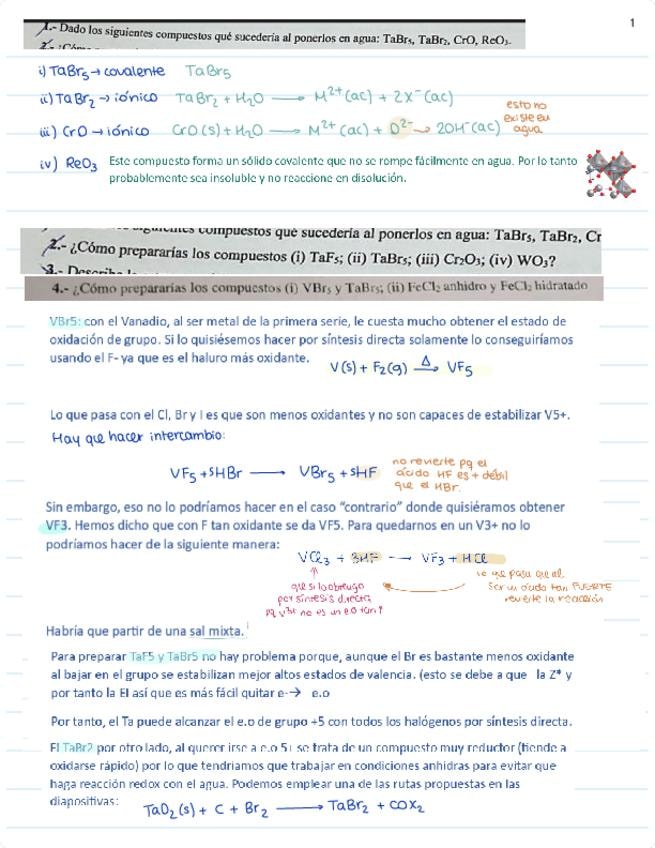 1
1.- Dado los siguientes compuestos qué sucedería al ponerlos en agua: TaBr₅, TaBr₂, CrO, ReO₃.
2.- ¿Cómo
i) TaBr₅ → covalente TaBr₅
ii) TaBr₂ → iónico TaBr₂ + H₂O → M²⁺(ac) + 2X⁻(ac)
iii) CrO → iónico CrO(s) + H₂O → M²⁺(ac) + O²⁻ → 2OH⁻(ac)
esto no
existe en
agua
iv) ReO₃ Este compuesto forma un sólido covalente que no se rompe fácilmente en agua. Por lo tanto
probablemente sea insoluble y no reaccione en disolución.
siguientes compuestos qué sucedería al ponerlos en agua: TaBr₅, TaBr₂, Cr
2.- ¿Cómo prepararías los compuestos (i) TaF₅; (ii) TaBr₅; (iii) Cr₂O₃; (iv) WO₃?
3.- Describe
4.- ¿Cómo prepararías los compuestos (i) VBr₅ y TaBr₅; (ii) FeCl₂ anhidro y FeCl₂ hidratado
VBr5: con el Vanadio, al ser metal de la primera serie, le cuesta mucho obtener el estado de
oxidación de grupo. Si lo quisiésemos hacer por síntesis directa solamente lo conseguiríamos
usando el F- ya que es el haluro más oxidante.
V(s) + F₂(g) Δ→ VF₅
Lo que pasa con el Cl, Br y I es que son menos oxidantes y no son capaces de estabilizar V5+.
Hay que hacer intercambio:
VF₅ + 5HBr → VBr₅ + 5HF
no revierte pq el
ácido HF es + débil
que el HBr.
Sin embargo, eso no lo podríamos hacer en el caso "contrario" donde quisiéramos obtener
VF3. Hemos dicho que con F tan oxidante se da VF5. Para quedarnos en un V3+ no lo
podríamos hacer de la siguiente manera:
VCl₃ + 3HF → VF₃ + HCl
que si lo obtengo
por síntesis directa
pq V³⁺ no es un e.o tan ↑
lo que pasa que al
ser un ácido tan FUERTE
revierte la reacción
Habría que partir de una sal mixta.
Para preparar TaF5 y TaBr5 no hay problema porque, aunque el Br es bastante menos oxidante
al bajar en el grupo se estabilizan mejor altos estados de valencia. (esto se debe a que la Z* y
por tanto la EI así que es más fácil quitar e-→ e.o
Por tanto, el Ta puede alcanzar el e.o de grupo +5 con todos los halógenos por síntesis directa.
El TaBr2 por otro lado, al querer irse a e.o 5+ se trata de un compuesto muy reductor (tiende a
oxidarse rápido) por lo que tendriamos que trabajar en condiciones anhidras para evitar que
haga reacción redox con el agua. Podemos emplear una de las rutas propuestas en las
diapositivas:
TaO₂(s) + C + Br₂ → TaBr₂ + COX₂